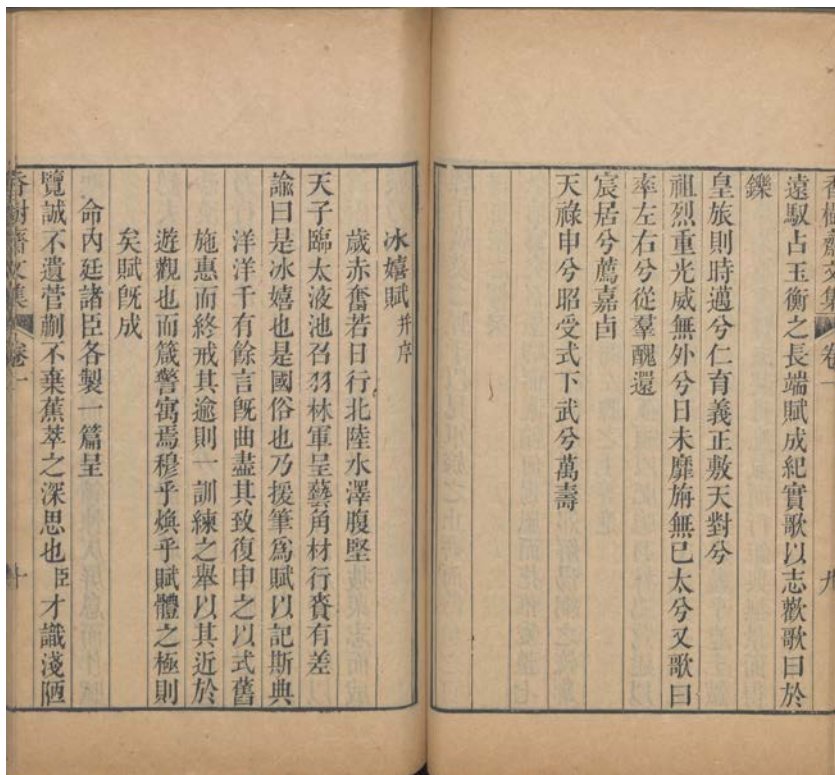 香樹齋文集 卷一 九
遠馭占玉衡之長端賦成紀實歌以志歡歌曰於
鑠
皇旅則時邁兮仁育義正敷天對兮
祖烈重光威無外兮日未靡旃無已太兮又歌曰
率左右兮從羣醜還
宸居兮薦嘉卣
天祿申兮昭受式下武兮萬壽
冰嬉賦并序
歲赤奮若日行北陸水澤腹堅
天子臨太液池召羽林軍呈藝角材行賚有差
諭曰是冰嬉也是國俗也乃援筆爲賦以記斯典
洋洋千有餘言旣曲盡其致復申之以式舊
施惠而終戒其逾則一訓練之舉以其近於
遊觀也而箴警寓焉穆乎煥乎賦體之極則
矣賦旣成
命內廷諸臣各製一篇呈
覽誠不遺菅蒯不棄蕉萃之深思也臣才識淺陋
香樹齋文集 卷一 十